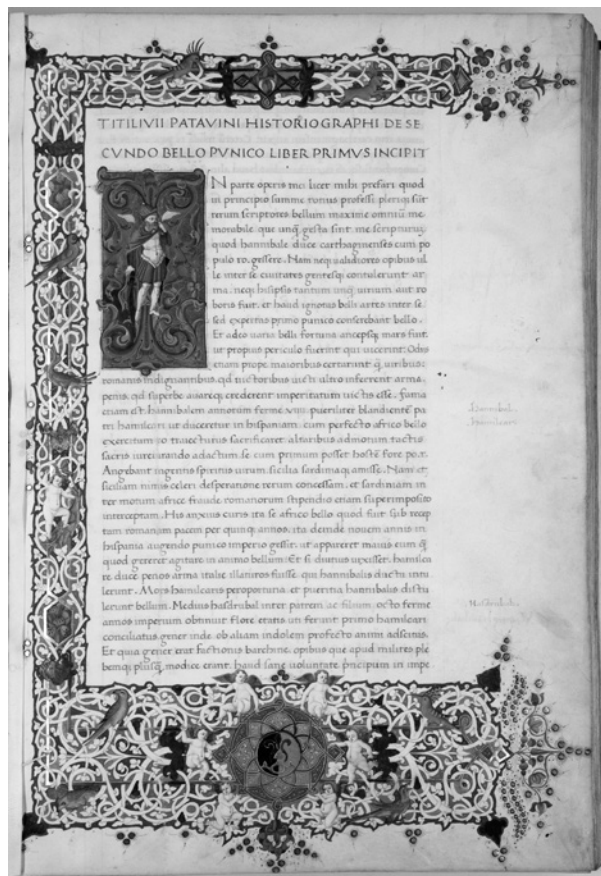 3
TITI LIVII PATAVINI HISTORIOGRAPHI DE SE
CVNDO BELLO PVNICO LIBER PRIMVS INCIPIT
N parte operis mei licet mihi prefari quod
in principio summe totius professi plerique sunt
rerum scriptores bellum maxime omniũ me
morabile que unq̃ gesta sint me scripturum
quod hannibale duce carthaginenses cum po
pulo ro. gessere. Nam neq ualidiores opibus ul
le inter se ciuitates gentesq contulerunt ar
ma. neq hisipsis tantum unq̃ uirium aut ro
boris fuit. et haud ignotas belli artes inter se
sed expertas primo punico conserebant bello.
Et adeo uaria belli fortuna ancepsq mars fuit.
ut propius periculo fuerint qui uicerint. Odiis
etiam prope maioribus certarunt q̃ uiribus:
romanis indignantibus. qd uictoribus uicti ultro inferrent arma.
penis. qd superbe auareq crederent imperitatum uictis esse. fama
etiam est. hannibalem annorum ferme .viiii. pueriliter blandientẽ pa
tri hamilcari ut duceretur in hispaniam. cum perfecto africo bello
exercitum eo traiecturus sacrificaret. altaribus admotum tactis
sacris iureiurando adactum. se cum primum posset hostẽ fore po.r.
Angebant ingentis spiritus uirum. sicilia sardiniaq amisse. Nam et
siciliam nimis celeri desperatione rerum concessam. et sardiniam in
ter motum africe fraude romanorum stipendio etiam superimposito
interceptam. His anxius curis ita se africo bello quod fuit sub recep
tam romanam pacem per quinq annos. ita deinde nouem annis in
hispania augendo punico imperio gessit. ut appareret maius eum q̃
quod gereret agitare in animo bellum. Et si diutius uixisset. hamilca
re duce penos arma italie illaturos fuisse. qui hannibalis ductu intu
lerunt. Mors hamilcaris peroportuna. et pueritia hannibalis distu
lerunt bellum. Medius hasdrubal inter patrem ac filium. octo ferme
annos imperium obtinuit flore etatis uti ferunt primo hamilcari
conciliatus. gener inde ob aliam indolem profecto animi adscitus.
Et quia gener erat factionis barchine. opibus que apud milites ple
bemq plusq̃. modice erant. haud sane uoluntate principum in impe
Hannibal.
Hamilcari
Hasdrubal